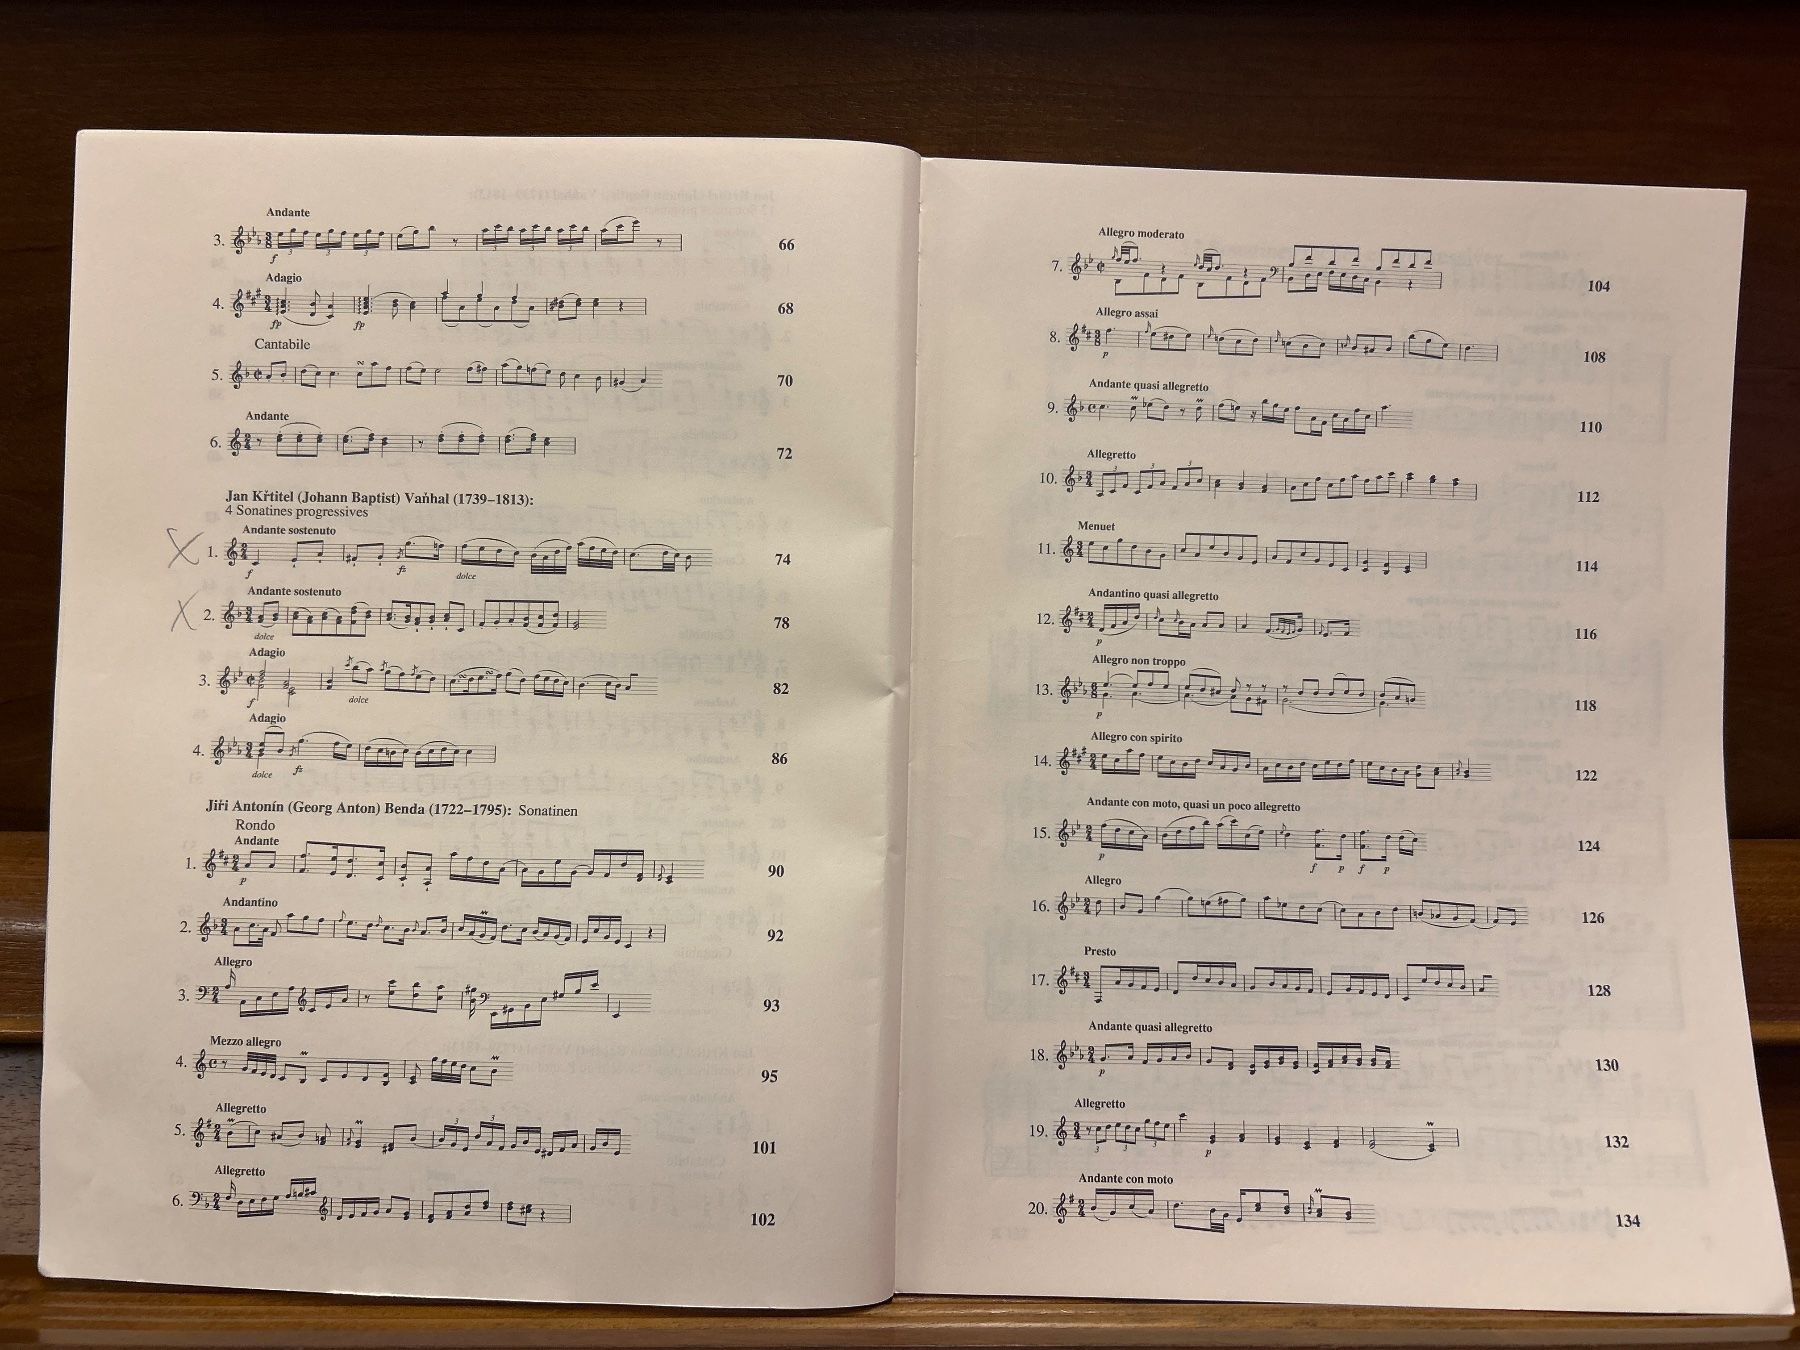 Andante
3. 66
f 3 3 3 3 3 3
Adagio
4. 68
fp fp
Cantabile
5. 70
Andante
6. 72
Jan Křtitel (Johann Baptist) Vaňhal (1739–1813):
4 Sonatines progressives
Andante sostenuto
X 1. 74
f fz dolce
Andante sostenuto
X 2. 78
dolce
Adagio
3. 82
f dolce
Adagio
4. 86
dolce fz
Jiří Antonín (Georg Anton) Benda (1722–1795): Sonatinen
Rondo
Andante
1. 90
p
Andantino
2. 92
Allegro
3. 93
Mezzo allegro
4. 95
Allegretto
5. 101
3 3
Allegretto
6. 102
Allegro moderato
7. 104
Allegro assai
8. 108
p
Andante quasi allegretto
9. 110
Allegretto
10. 112
3 3 3
Menuet
11. 114
Andantino quasi allegretto
12. 116
p
Allegro non troppo
13. 118
p
Allegro con spirito
14. 122
Andante con moto, quasi un poco allegretto
15. 124
p f p f p
Allegro
16. 126
Presto
17. 128
Andante quasi allegretto
18. 130
p
Allegretto
19. 132
3 3 3 p
Andante con moto
20. 134